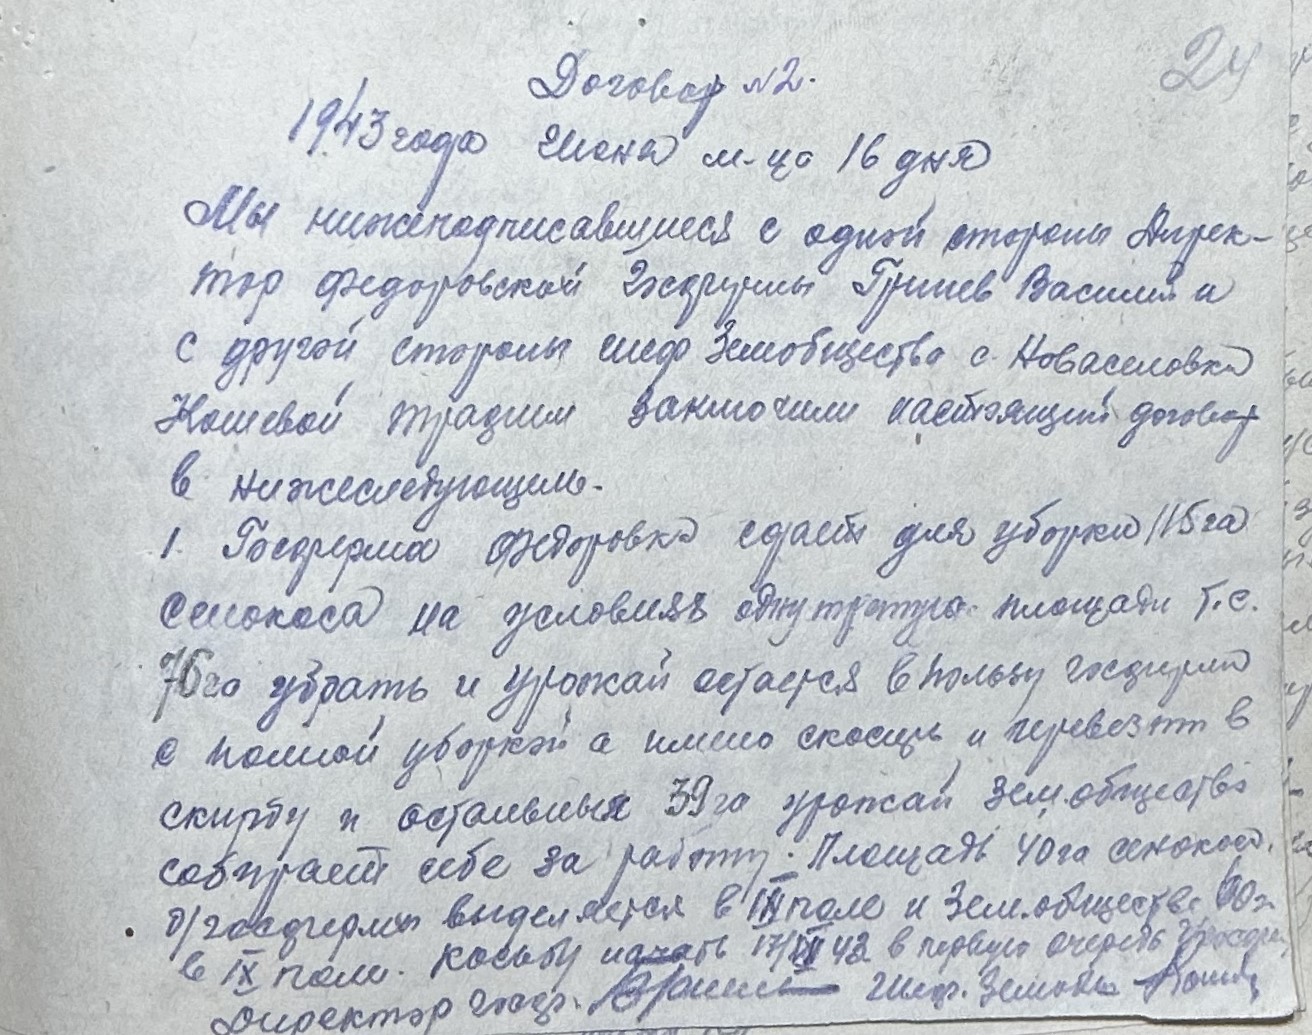 24
Договор №2.
1943 года Июня м-ца 16 дня
Мы нижеподписавшиеся с одной стороны Дирек-
тор Федоровской Госфермы Гринев Василий и
с другой стороны шеф Земобщество с. Новоселовка
Кошевой заключили настоящий договор
в нижеследующем.
1. Госферма Федоровка сдает для уборки 115 га
сенокоса на условиях одну третью площади т.е.
76 га убрать и урожай остается в пользу госферма
с полной уборкой а имено скосить и перевезти в
скирду и остальных 39 га урожай Зем.общество
собирает себе за работу. Площадь 40 га сенокоса
д/госфермы выделяется в поле и Зем.обществе
в IX поле. Косьбу начать в первую очередь
Директор госф. Шеф. Земобщ